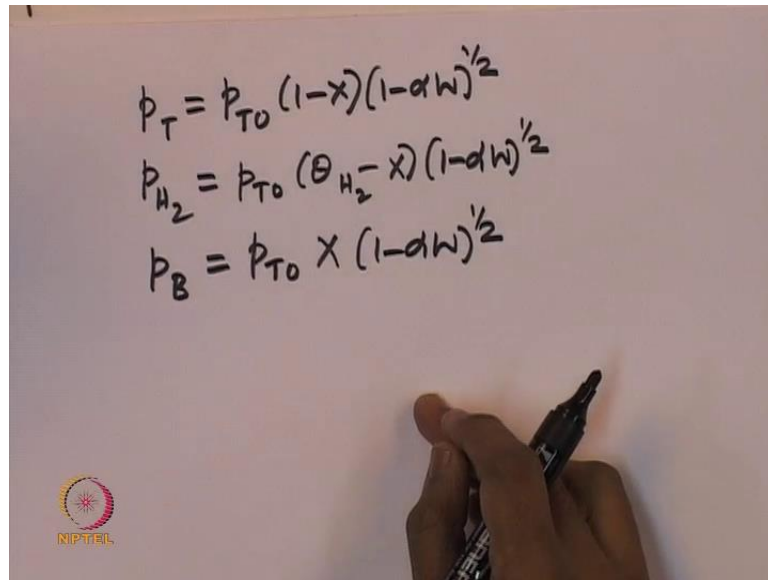 p_T = p_T0 (1-X)(1-αW)^1/2
p_H2 = p_T0 (θ_H2 - X)(1-αW)^1/2
p_B = p_T0 X (1-αW)^1/2
NPTEL